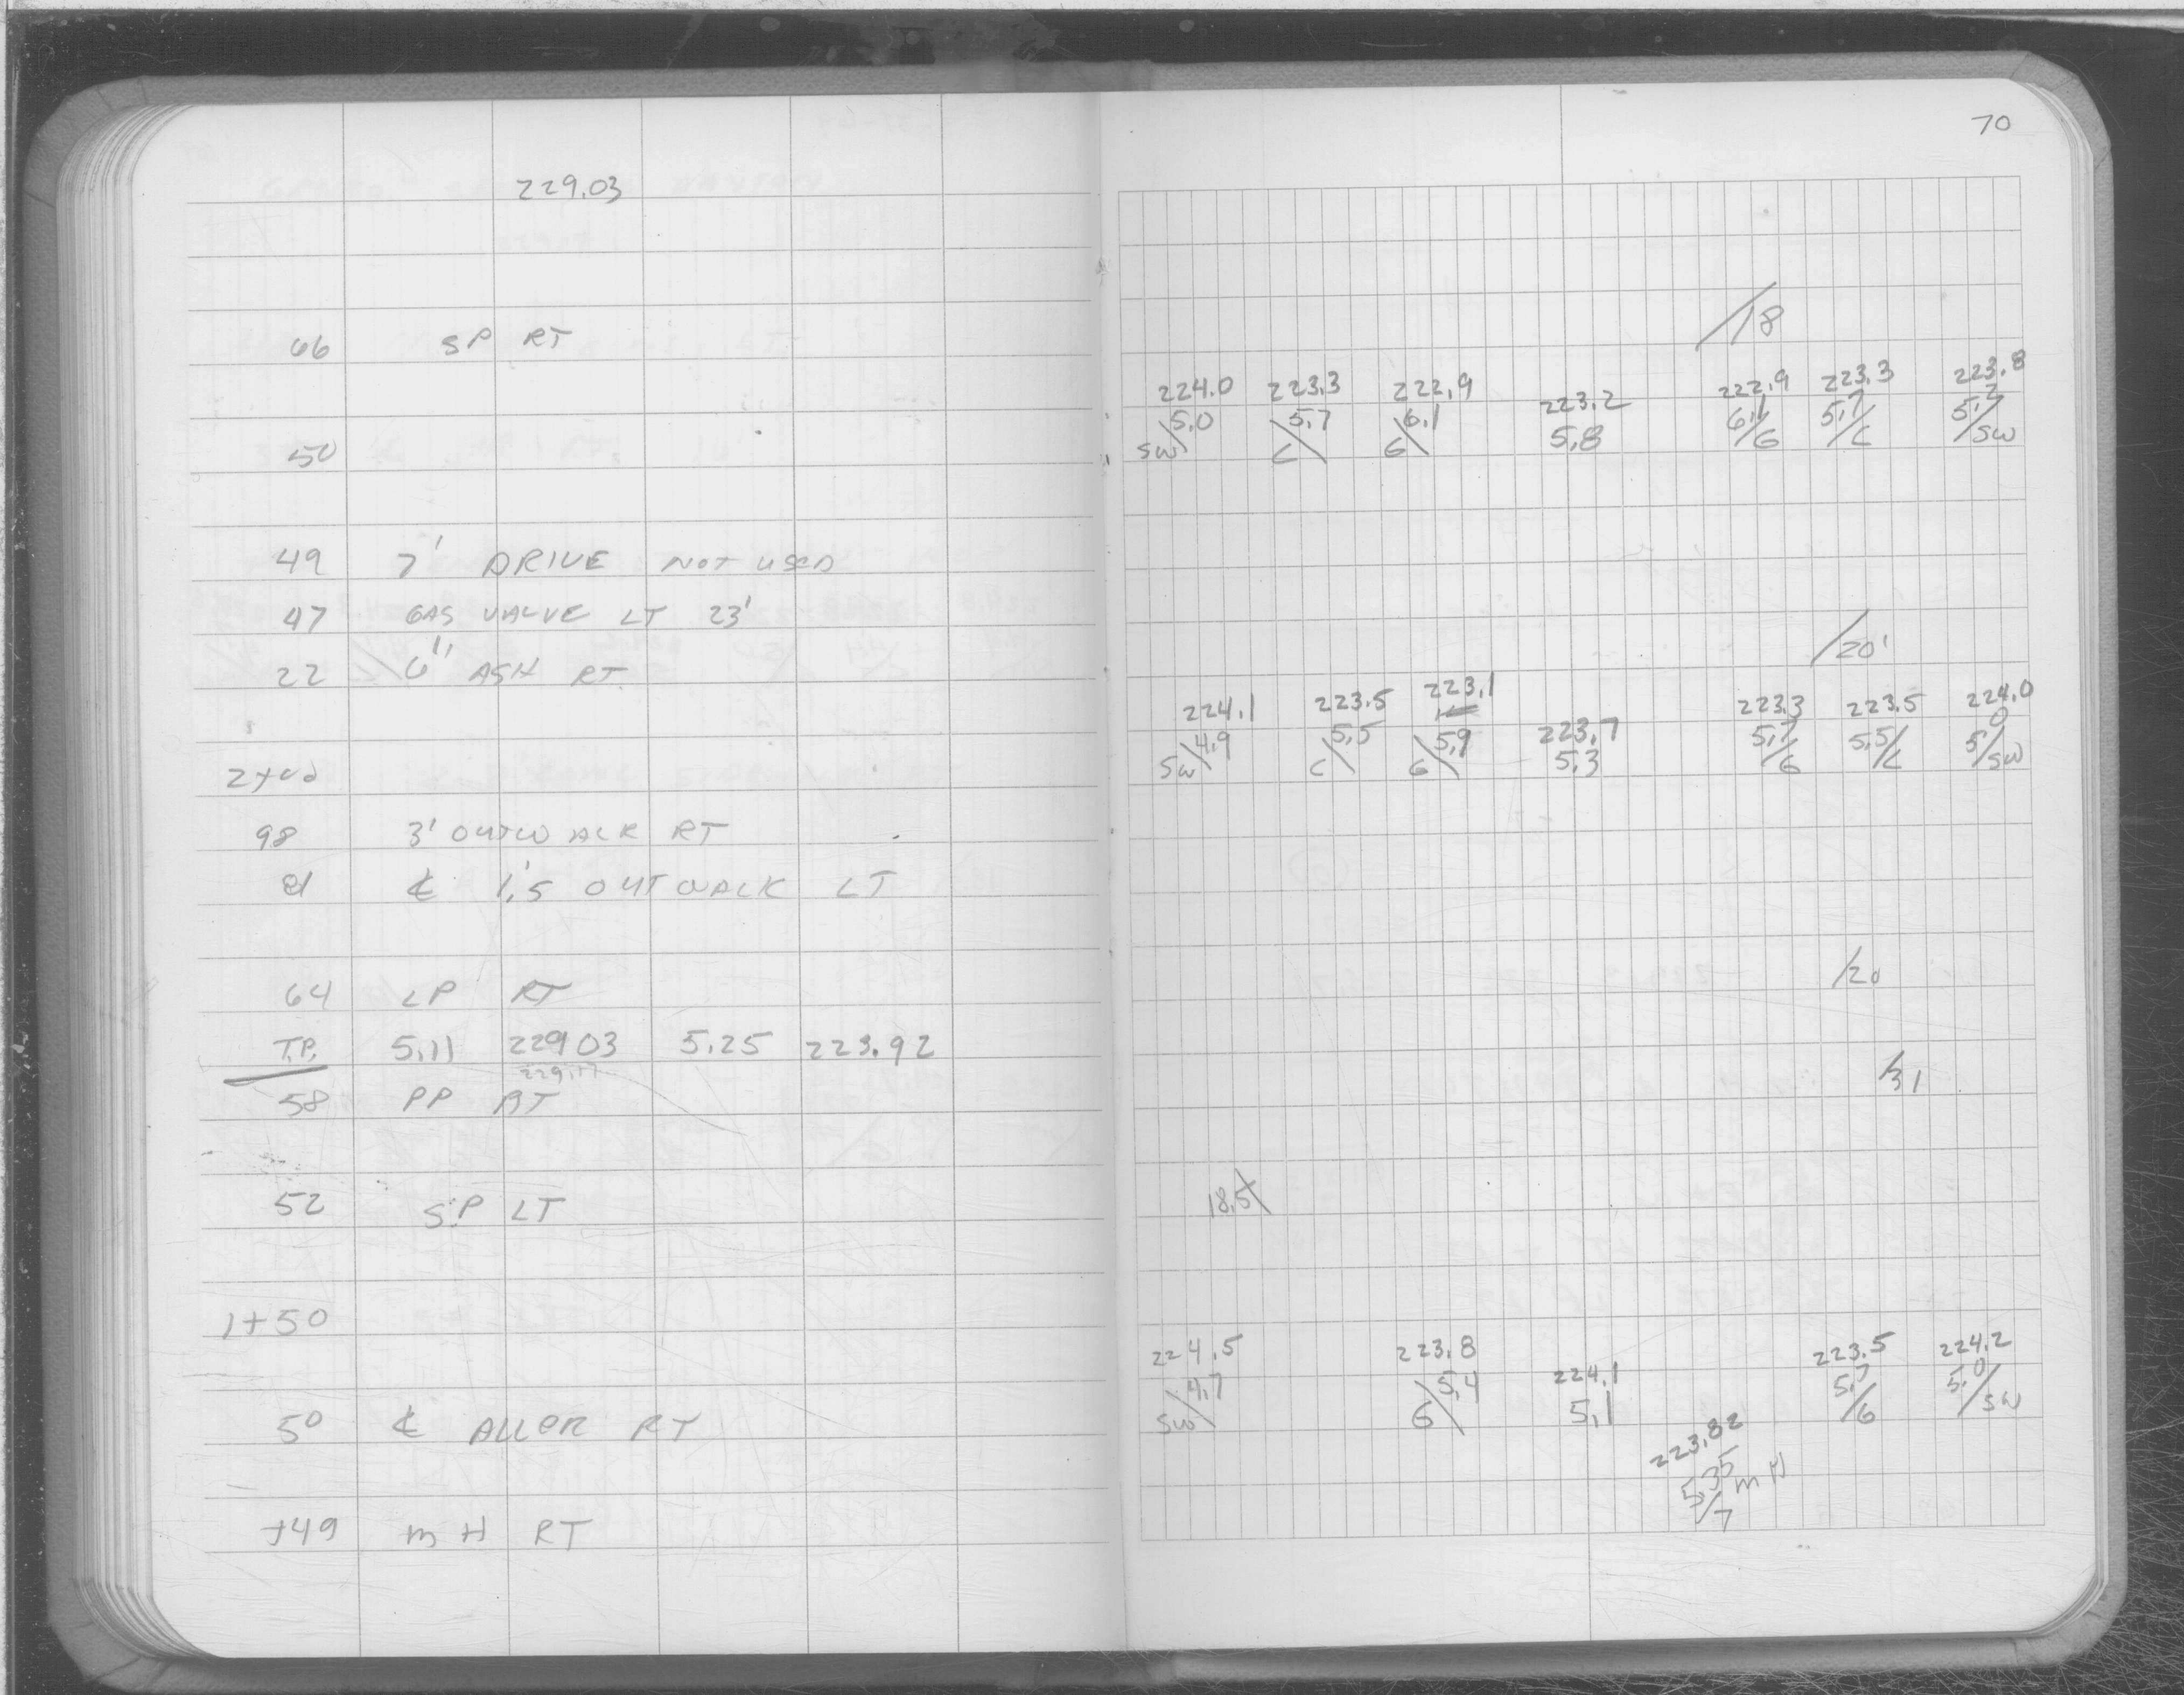 70
229.03
/18
66 SP RT
224.0 223.3 222.9 223.2 222.9 223.3 223.8
5.0 5.7 6.1 5.8 6.1 5.7 5.2
50 SW\ C\ G\ /G /C /SW
49 7' DRIVE NOT USED
47 GAS VALVE LT 23'
/20'
22 6" ASH RT
224.1 223.5 223.1 223.7 223.3 223.5 224.0
4.9 5.5 5.9 5.3 5.7 5.5 5.0
2+00 SW\ C\ G\ /G /C /SW
98 3' OUTWALK RT
81 ℄ 1.'5 OUTWALK LT
64 LP RT /20
T.P. 5.11 229.03 5.25 223.92
229.17
58 PP RT /31
52 SP LT 18.5\
1+50
224.5 223.8 224.1 223.5 224.2
4.7 5.4 5.1 5.7 5.0
SW\ G\ /G /SW
50 ℄ ALLER RT
223.82
5.35 MH
/7
+49 MH RT